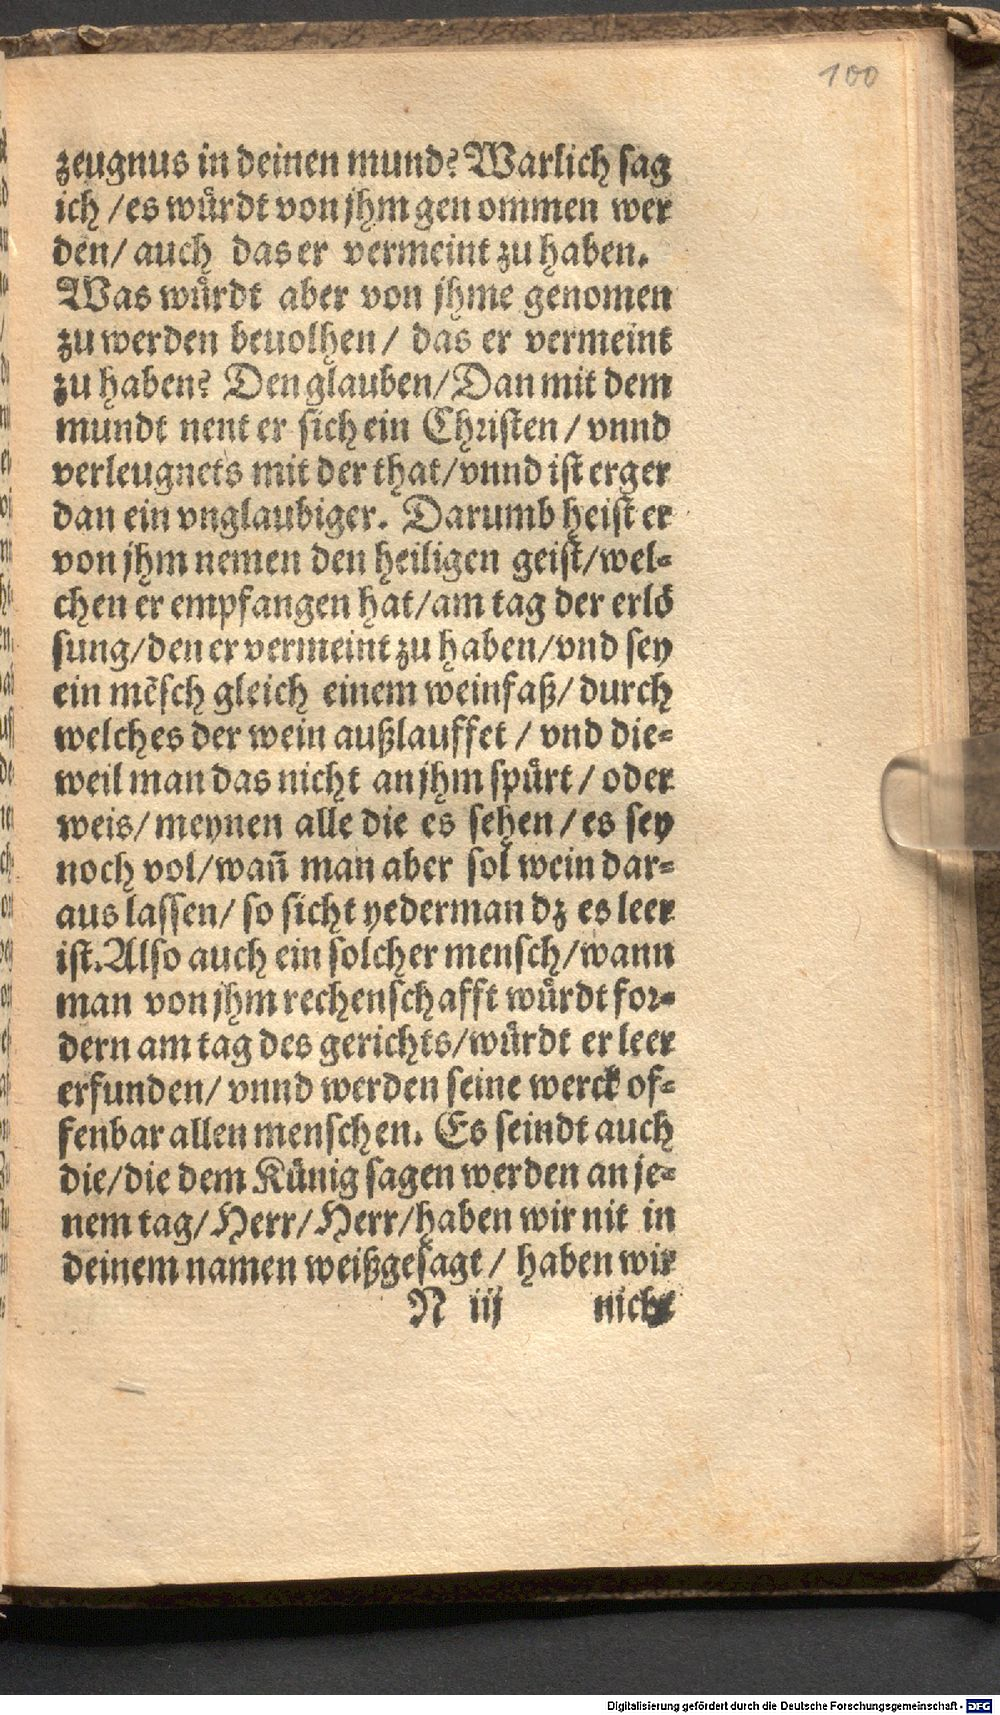 100
zeugnus in deinen mund? Warlich sag
ich / es wuͤrdt von jhm gen ommen wer
den / auch das er vermeint zu haben.
Was wuͤrdt aber von jhme genomen
zu werden beuolhen / das er vermeint
zu haben? Den glauben / Dan mit dem
mundt nent er sich ein Christen / vnnd
verleugnets mit der that / vnnd ist erger
dan ein vnglaubiger. Darumb heist er
von jhm nemen den heiligen geist / wel⸗
chen er empfangen hat / am tag der erloͤ
sung / den er vermeint zu haben / vnd sey
ein mēsch gleich einem weinfaß / durch
welches der wein außlauffet / vnd die⸗
weil man das nicht an jhm spuͤrt / oder
weis / meynen alle die es sehen / es sey
noch vol / wan̄ man aber sol wein dar⸗
aus lassen / so sicht yederman dz es leer
ist. Also auch ein solcher mensch / wann
man von jhm rechenschafft wuͤrdt for⸗
dern am tag des gerichts / wuͤrdt er leer
erfunden / vnnd werden seine werck of⸗
fenbar allen menschen. Es seindt auch
die / die dem Kuͤnig sagen werden an je⸗
nem tag / Herr / Herr / haben wir nit in
deinem namen weißgesagt / haben wir
N iij nicht
Digitalisierung gefördert durch die Deutsche Forschungsgemeinschaft - DFG